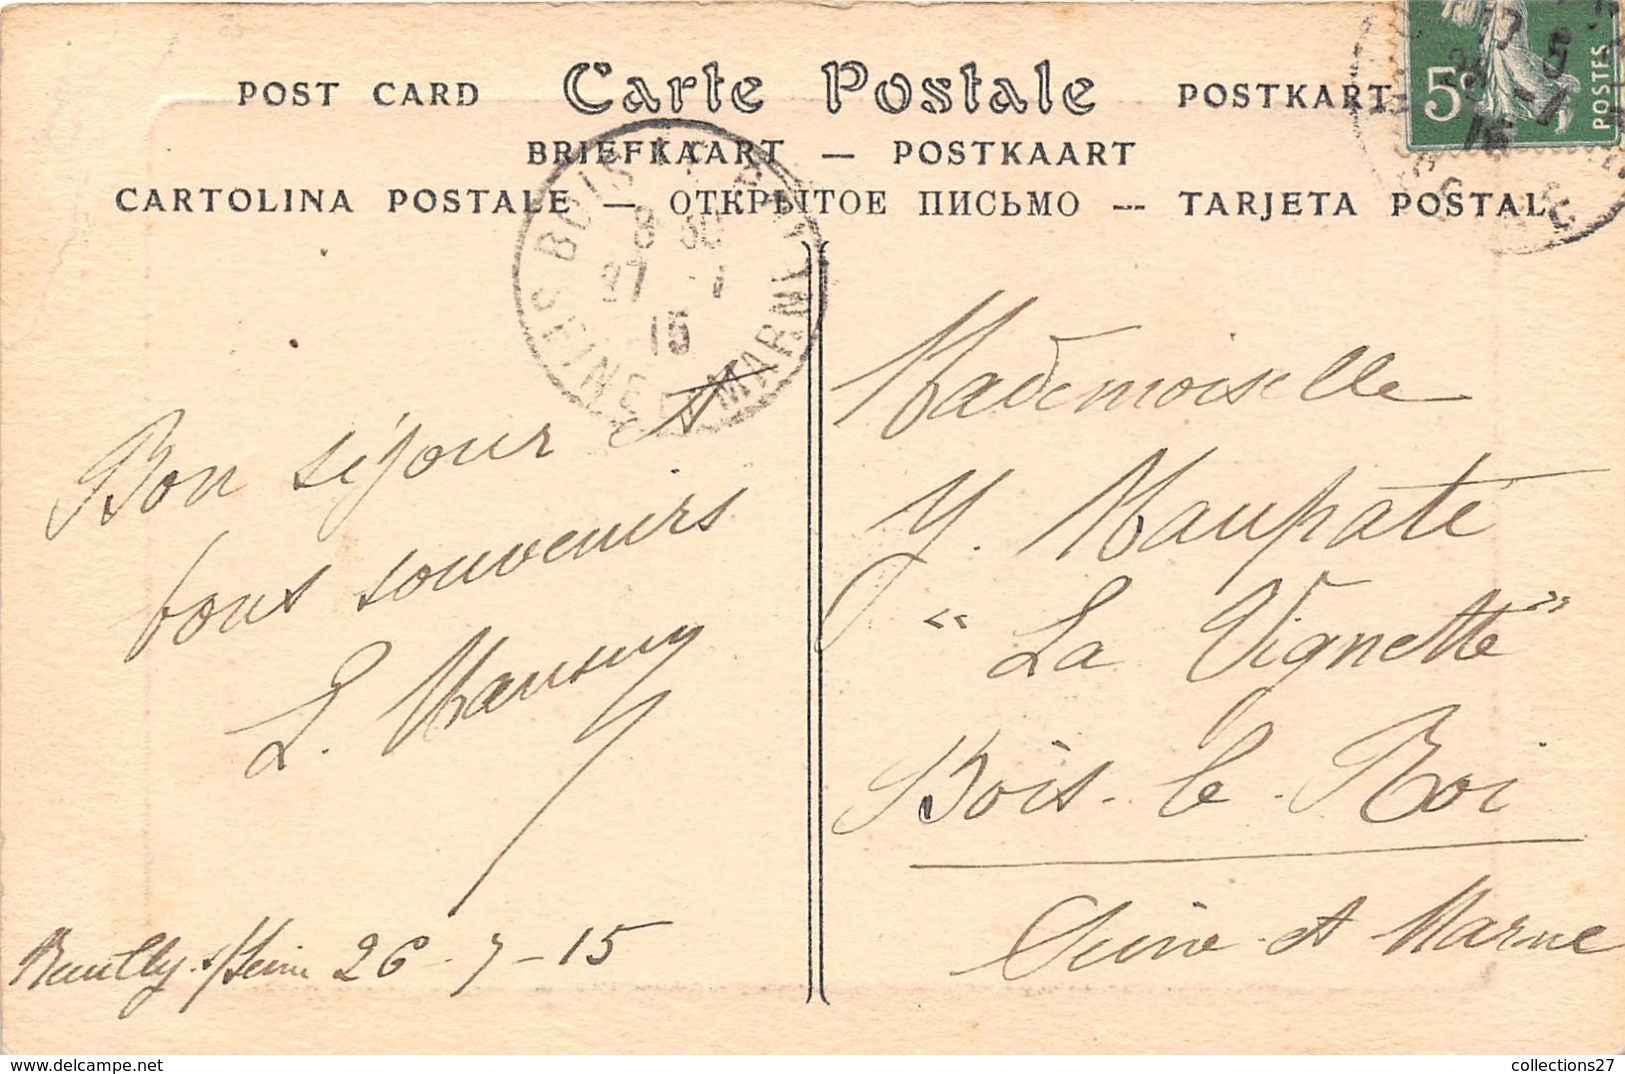 POST CARD Carte Postale POSTKART
BRIEFKAART — POSTKAART
CARTOLINA POSTALE — ОТКРЫТОЕ ПИСЬМО — TARJETA POSTAL
5c POSTES
17 5
16
BOIS LE ROI
8 30
27 - 7
15
SEINE ET MARNE
Bon séjour et
bons souvenirs
L. Mansuy
s/Seine 26-7-15
Mademoiselle
Y. Maupaté
"La Vignette"
Bois-le-Roi
Seine et Marne
collections27